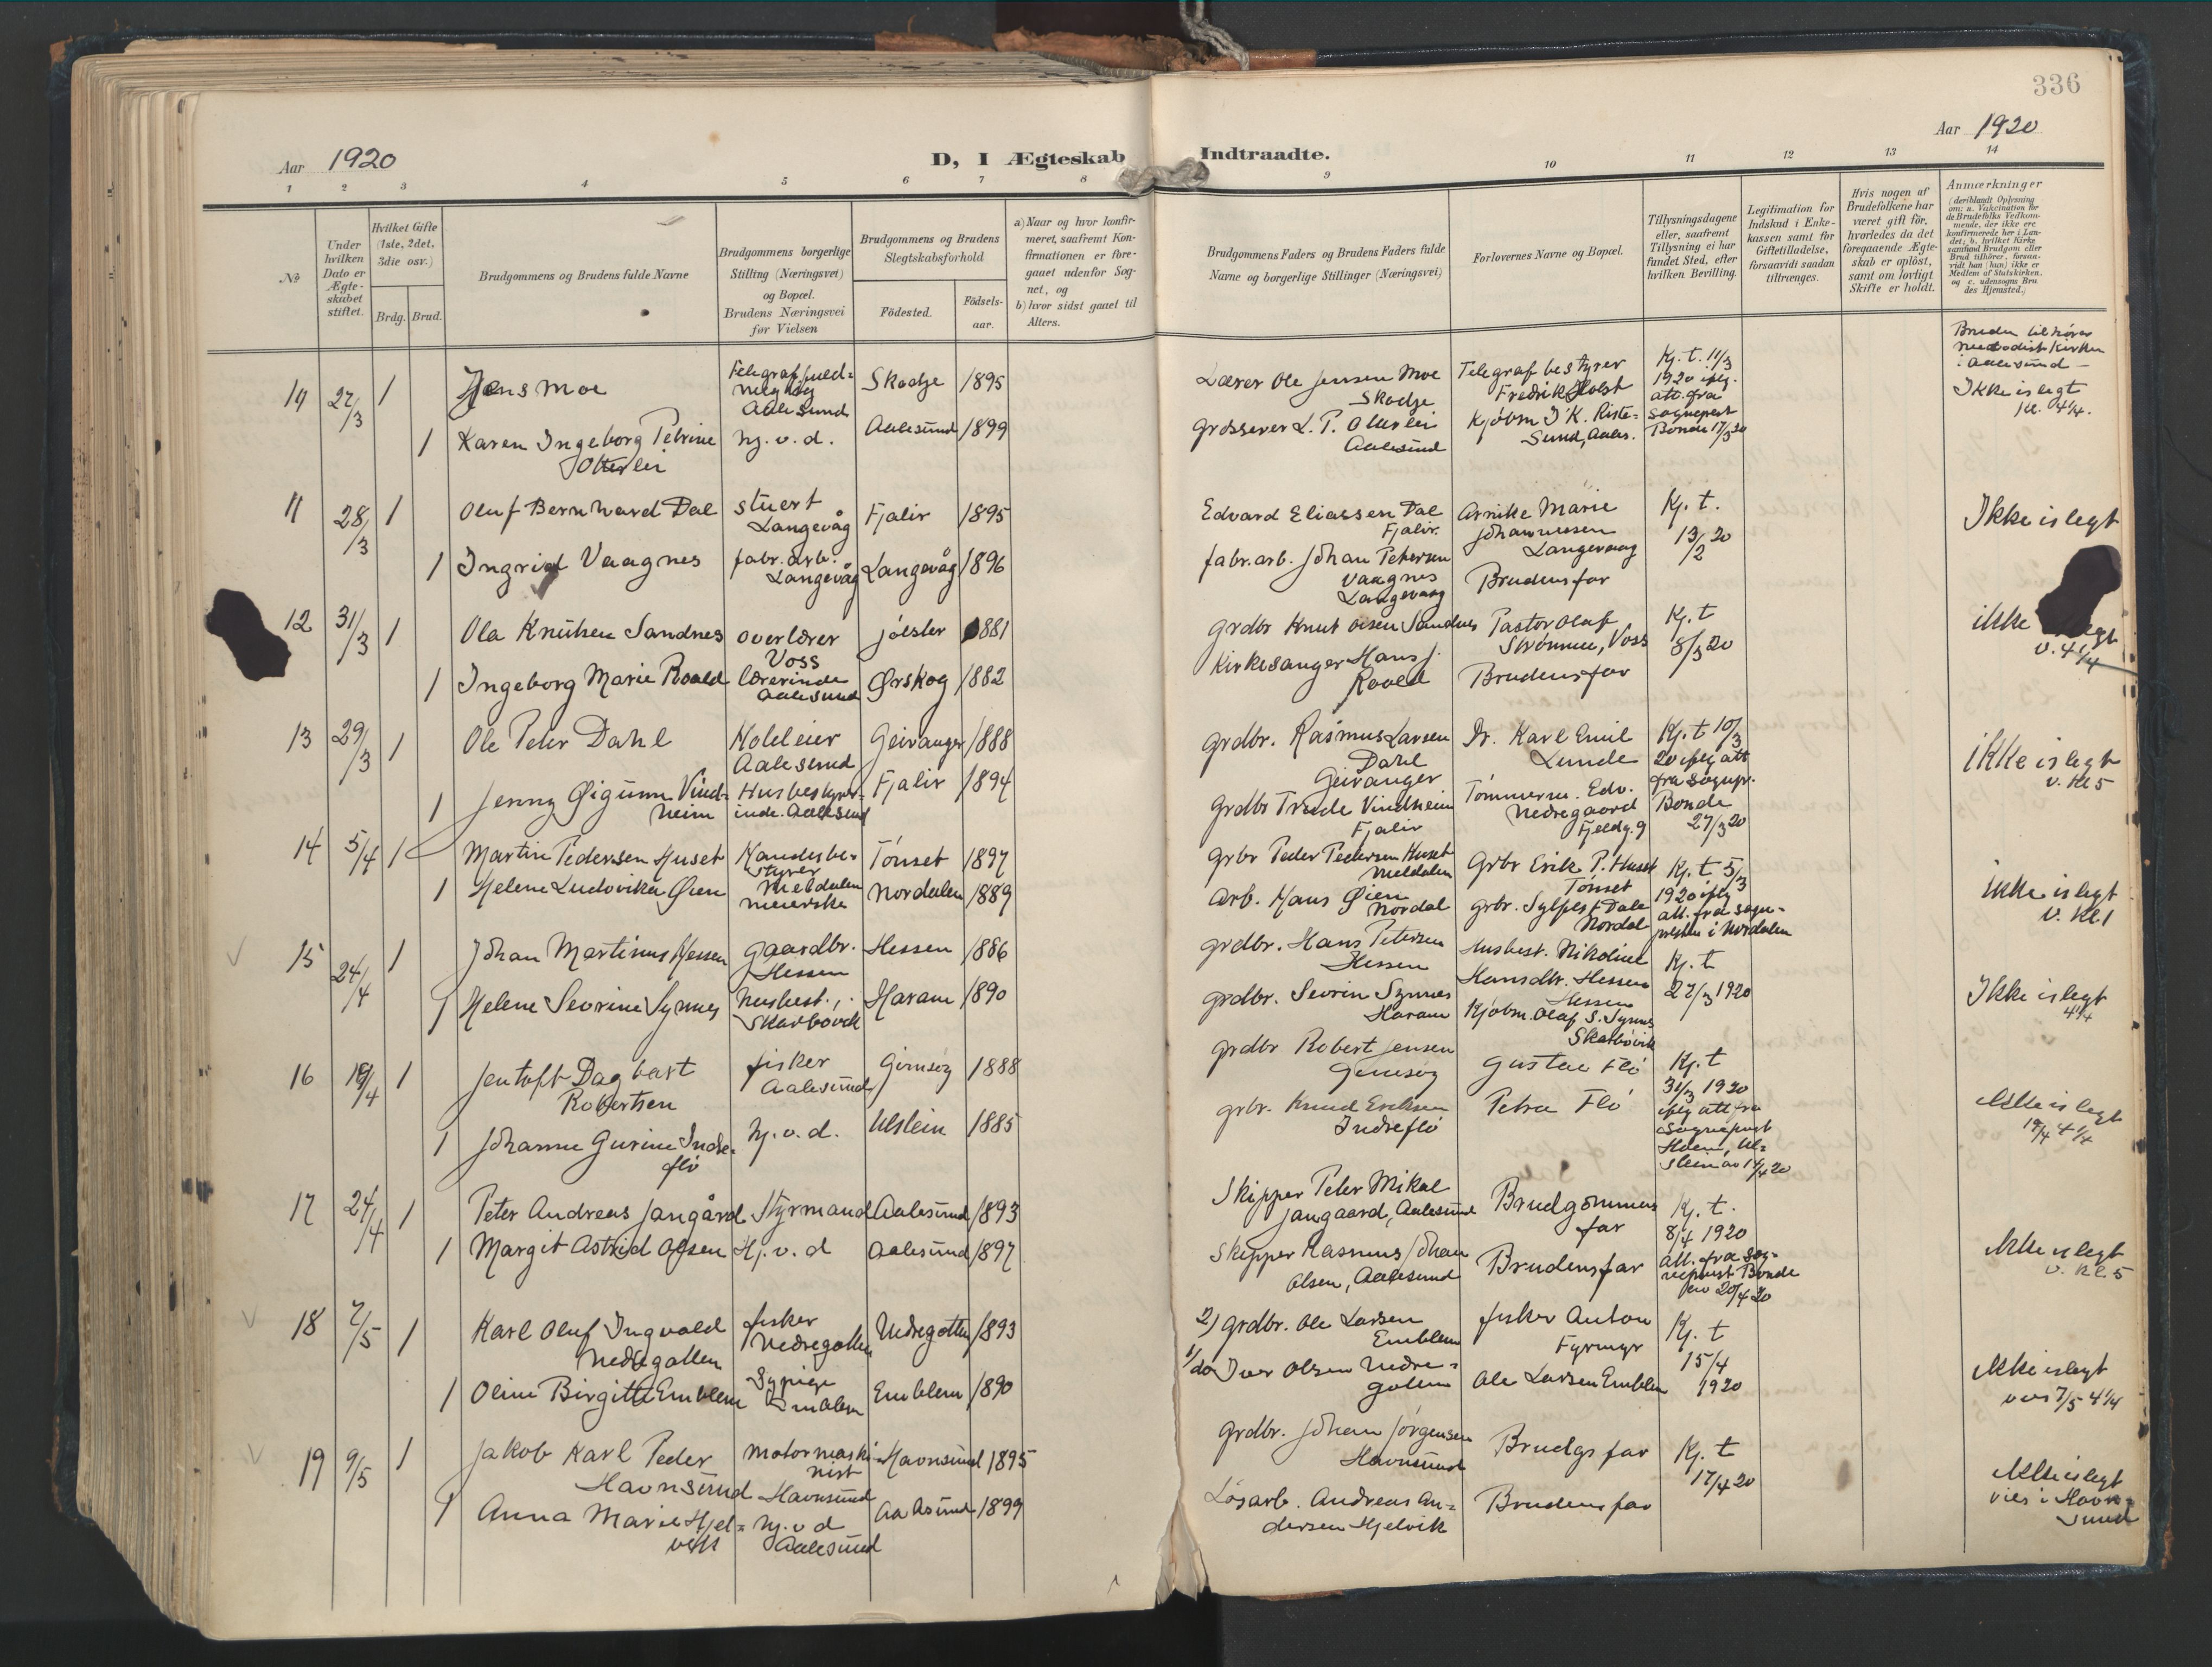 336
Aar 1920
D, I Ægteskab Indtraadte.
Aar 1920
1 2 3 4 5 6 7 8 9 10 11 12 13 14
№
Under hvilken Dato er Ægte-skabet stiftet.
Hvilket Gifte (1ste, 2det, 3die osv.)
Brdg. Brud.
Brudgommens og Brudens fulde Navne
Brudgommens borgerlige Stilling (Næringsvei) og Bopæl. Brudens Næringsvei før Vielsen
Brudgommens og Brudens Slegtskabsforhold
Födested.
Födsels-aar.
a) Naar og hvor konfir-meret, saafremt Kon-firmationen er fore-gaaet udenfor Sog-net, og
b) hvor sidst gaaet til Alters.
Brudgommens Faders og Brudens Faders fulde Navne og borgerlige Stillinger (Næringsvei)
Forlovernes Navne og Bopæl.
Tillysningsdagene eller, saafremt Tillysning ei har fundet Sted, efter hvilken Bevilling.
Legitimation for Indskud i Enke-kassen samt for Giftetilladelse, forsaavidt saadan tiltrænges.
Hvis nogen af Brudefolkene har været gift før, hvorledes da det foregaaende Ægte-skab er oplöst, samt om lovligt Skifte er holdt.
Anmærkninger (deriblandt Oplysning om: a. Vakcination for de Brudefolks Vedkom-mende, der ikke ere konfirmerede her i Lan-det; b. hvilket Kirke samfund Brudgom eller Brud tilhörer, forsaa-vidt han (hun) ikke er Medlem af Statskirken, og c. udensogns Bru des Hjemsted.)
27/3 1 Jens Moe
Skodje 1895
Lærer Ole Jensen Moe
Skodje
Telegrafbestyrer
Fredrik Holst
Kj. t. 11/3
1920 iflg.
att. fra
sognepr.
Bonde 17/3 20
Bruden tilhører
metodistkirken
i Aalesund
Ikke islegt
kl. 4 1/4.
1 Karen Ingeborg Petrine
Otterlei
hj. v. d.
Aalesund 1899
Grosserer L. P. Otterlei
Aalesund
Kjøbm J. K. Riste=
Sund, Aales.
11 28/3 1 Oluf Bernhard Dal
stuert
Langevåg
Fjalir 1895
Edvard Eliassen Dal
Fjalir.
Johannessen
Langevaag
Kj. t.
13/2 20
Ikke islegt
1 Ingrid Vaagnes
fabr. arb.
Langevåg
Langevåg 1896
fabr. arb. Johan Petersen
Vaagnes
Langevaag
Brudens far
12 31/3 1 Ola Knutsen Sandnes
overlærer
Voss
Jølster 1881
Grdbr Knut Olsen Sandnes
Pastor Olaf
Strømme, Voss
Kj. t
8/3 20
ikke
v. 4 1/4
1 Ingeborg Marie Roald
lærerinde
Aalesund
Ørskog 1882
Kirkesanger Hans J.
Roald
Brudens far
13 29/3 1 Ole Peter Dahl
Aalesund
Geiranger 1888
Grdbr. Rasmus Larsen
Dahl
Geiranger
Dr. Karl Emil
Lunde
Kj. t 10/3
20 iflg att
fra sognpr.
Bonde
27/3 20
ikke islegt
v. kl 5
1 Jenny Øigunn Vind=
heim
Husbestyrer=
inde. Aalesund
Fjalir 1894
Grdbr Trude Vindheim
Fjalir
Tømmerm. Edv.
Nedregaard
Fjeldg. 9
14 5/4 1 Martin Pedersen Huset
Handelsbe=
styrer
Meldalen
Tönset 1897
Grbr Peder Pedersen Huset
Meldalen
Grbr Erik P. Huset
Tönset
Kj. t 5/3
1920 iflg
att. fra sogne-
presten i Nordalen
ikke islegt
v. kl. 1
1 Helene Ludovika Øien
meierske
Nordalen 1889
Arb. Hans Øien
Nordal
Grbr. Sylfest Dale
Nordal
15 24/4 1 Johan Martinus Hessen
gaardbr.
Hessen
Hessen 1886
grdbr. Hans Petersen
Hessen
Husbest. Nikoline
Hansdtr. Hessen
Hessen
Kj. t
27/3 1920
Ikke islegt
4 1/4
1 Helene Sevrine Synnes
husbest.
Skarbövik
Haram 1890
grdbr. Sevrin Synnes
Haram
Kjøbm. Olaf S. Synnes
Skarbövik
16 19/4 1 Jentoft Dagbart
Robertsen
fisker
Aalesund
Gimsøy 1888
grdbr Robert Jensen
Gimsøy
Gustav Flö
Kj. t
31/3 1920
iflg att fra
sogneprest
Ul=
stein av 14/4 20
Ikke islegt
19/4 4 1/4
1 Johanne Gurine Indre=
flö
hj. v. d.
Ulstein 1885
grbr. Knud Eriksen
Indreflö
Petra Flö
17 24/4 1 Peter Andreas Jangård
Styrmand
Aalesund 1893
Skipper Peter Mikal
Jangaard, Aalesund
Brudgommens
far
Kj. t.
8/4 1920
att. fra sog-
neprest Bonde
20/4 20
Ikke islegt
v. kl. 5
1 Margit Astrid Olsen
Hj. v. d
Aalesund 1897
Skipper Rasmus Johan
Olsen, Aalesund
Brudens far
18 7/5 1 Karl Oluf Ingvald
Nedregotten
fisker
Nedregotten
Nedregotten 1893
2) grdbr. Ole Larsen
Emblem
fisker Anton
Kj. t
15/4
1920
Ikke islegt
7/5 4 1/4
1 Oline Birgitte Emblem
Sypige
Emblem
Emblem 1890
1) do Iver Olsen Nedre=
Ole Larsen Emblem
19 9/5 1 Jakob Karl Peder
Havnsund
Motormaski
nist
Havnsund
Havnsund 1895
grdbr. Johan Jørgensen
Havnsund
Brudgs far
Kj. t
17/4 20
Ikke islegt
vies i Havn=
sund
1 Anna Marie Hjel=
vik
hj. v d
Aalesund
Aalesund 1899
Løsarb. Andreas An=
dersen Hjelvik
Brudens far